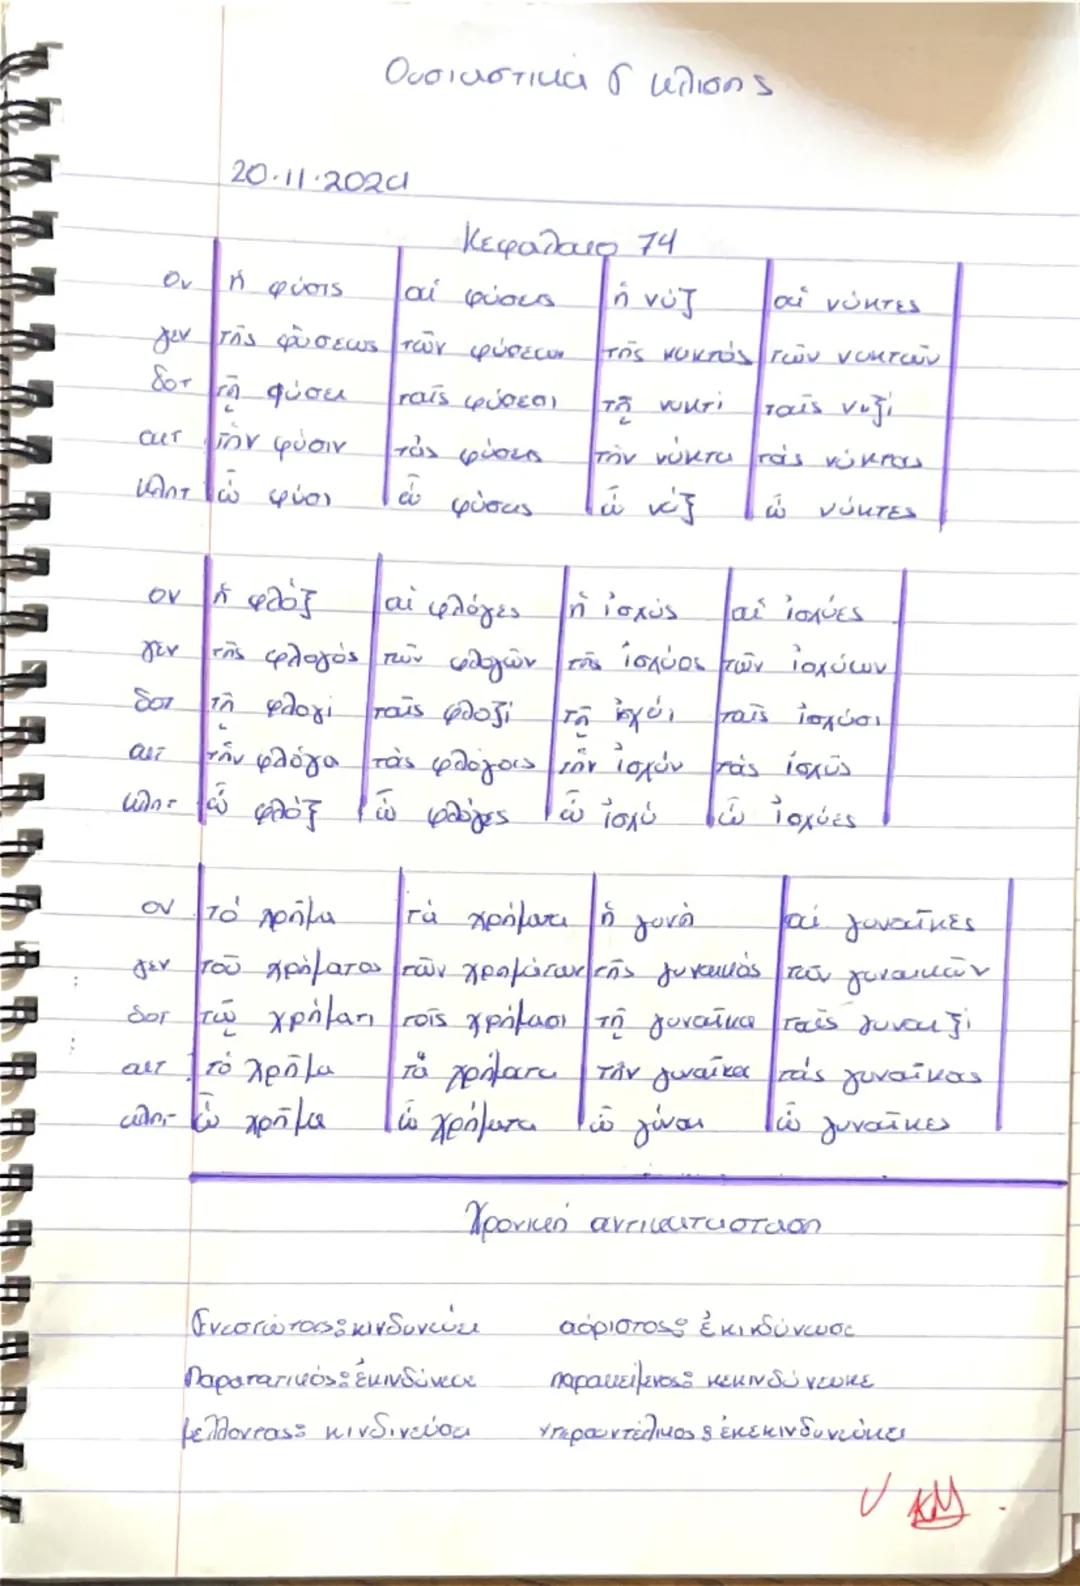 Ουσιαστικά γ κλίσης
20.11.2024
Κεφάλαιο 74
Ον ἡ φύσις αἱ φύσεις ἡ νύξ αἱ νύκτες
γεν τῆς φύσεως τῶν φύσεων τῆς νυκτός τῶν νυκτῶν
δοτ τῇ φύσει ταῖς φύσεσι τῇ νυκτί ταῖς νυξί
αιτ τήν φύσιν τάς φύσεις τήν νύκτα τάς νύκτας
κλητ ὦ φύσι ὦ φύσεις ὦ νύξ ὦ νύκτες
ον ἡ φλόξ αἱ φλόγες ἡ ἰσχύς αἱ ἰσχύες
γεν τῆς φλογός τῶν φλογῶν τῆς ἰσχύος τῶν ἰσχύων
δοτ τῇ φλογί ταῖς φλοξί τῇ ἰσχύι ταῖς ἰσχύσι
αιτ τήν φλόγα τάς φλόγας τήν ἰσχύν τάς ἰσχῦς
κλητ ὦ φλόξ ὦ φλόγες ὦ ἰσχύ ὦ ἰσχύες
ον τό χρῆμα τά χρήματα ἡ γυνή αἱ γυναῖκες
γεν τοῦ χρήματος τῶν χρημάτων τῆς γυναικός τῶν γυναικῶν
δοτ τῷ χρήματι τοῖς χρήμασι τῇ γυναῖκα ταῖς γυναιξί
αιτ τό χρῆμα τά χρήματα τήν γυναῖκα τάς γυναῖκας
κλητ ὦ χρῆμα ὦ χρήματα ὦ γύναι ὦ γυναῖκες
Χρονική αντικατάσταση
Ενεστώτας: κινδυνεύει αόριστος: ἐκινδύνευσε
Παρατατικός: ἐκινδύνευε παρακείμενος: κεκινδύνευκε
μέλλοντας: κινδινεύσει υπερσυντέλικος: ἐκεκινδυνεύκει
ΚΜ